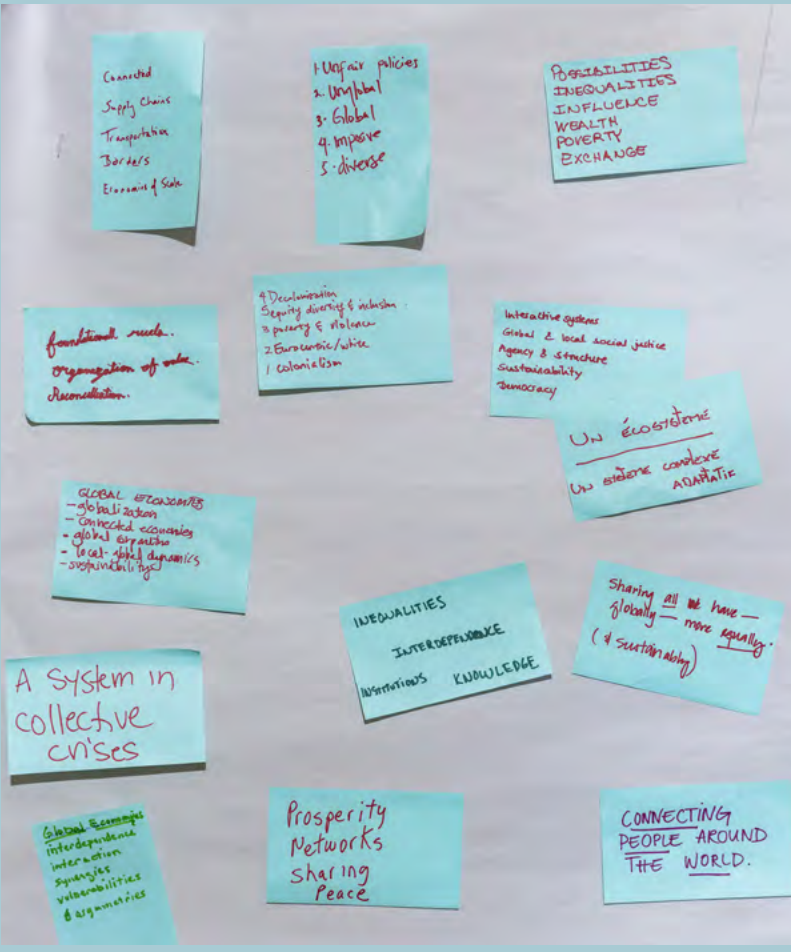 Connected
Supply Chains
Transportation
Borders
Economies of Scale
1. Unfair policies
2. Unglobal
3. Global
4. Imposive
5. diverse
POSSIBILITIES
INEQUALITIES
INFLUENCE
WEALTH
POVERTY
EXCHANGE
foundational needs.
organization of value.
Reconciliation.
4 Decolonization
5 equity diversity & inclusion.
3 poverty & violence
2 Eurocentric/white
1 colonialism
Interactive systems
Global & local social justice
Agency & structure
Sustainability
Democracy
UN ÉCOSYSTÈME
UN SYSTÈME COMPLEXE
ADAPTATIF
GLOBAL ECONOMIES
- globalization
- connected economies
- global
- local-global dynamics
- sustainability
INEQUALITIES
INTERDEPENDENCE
INSTITUTIONS KNOWLEDGE
Sharing all we have —
globally — more equally.
(& Sustainably)
A System in
collective
crises
Global Economies
interdependence
interaction
synergies
vulnerabilities
& asymetries
Prosperity
Networks
Sharing
Peace
CONNECTING
PEOPLE AROUND
THE WORLD.